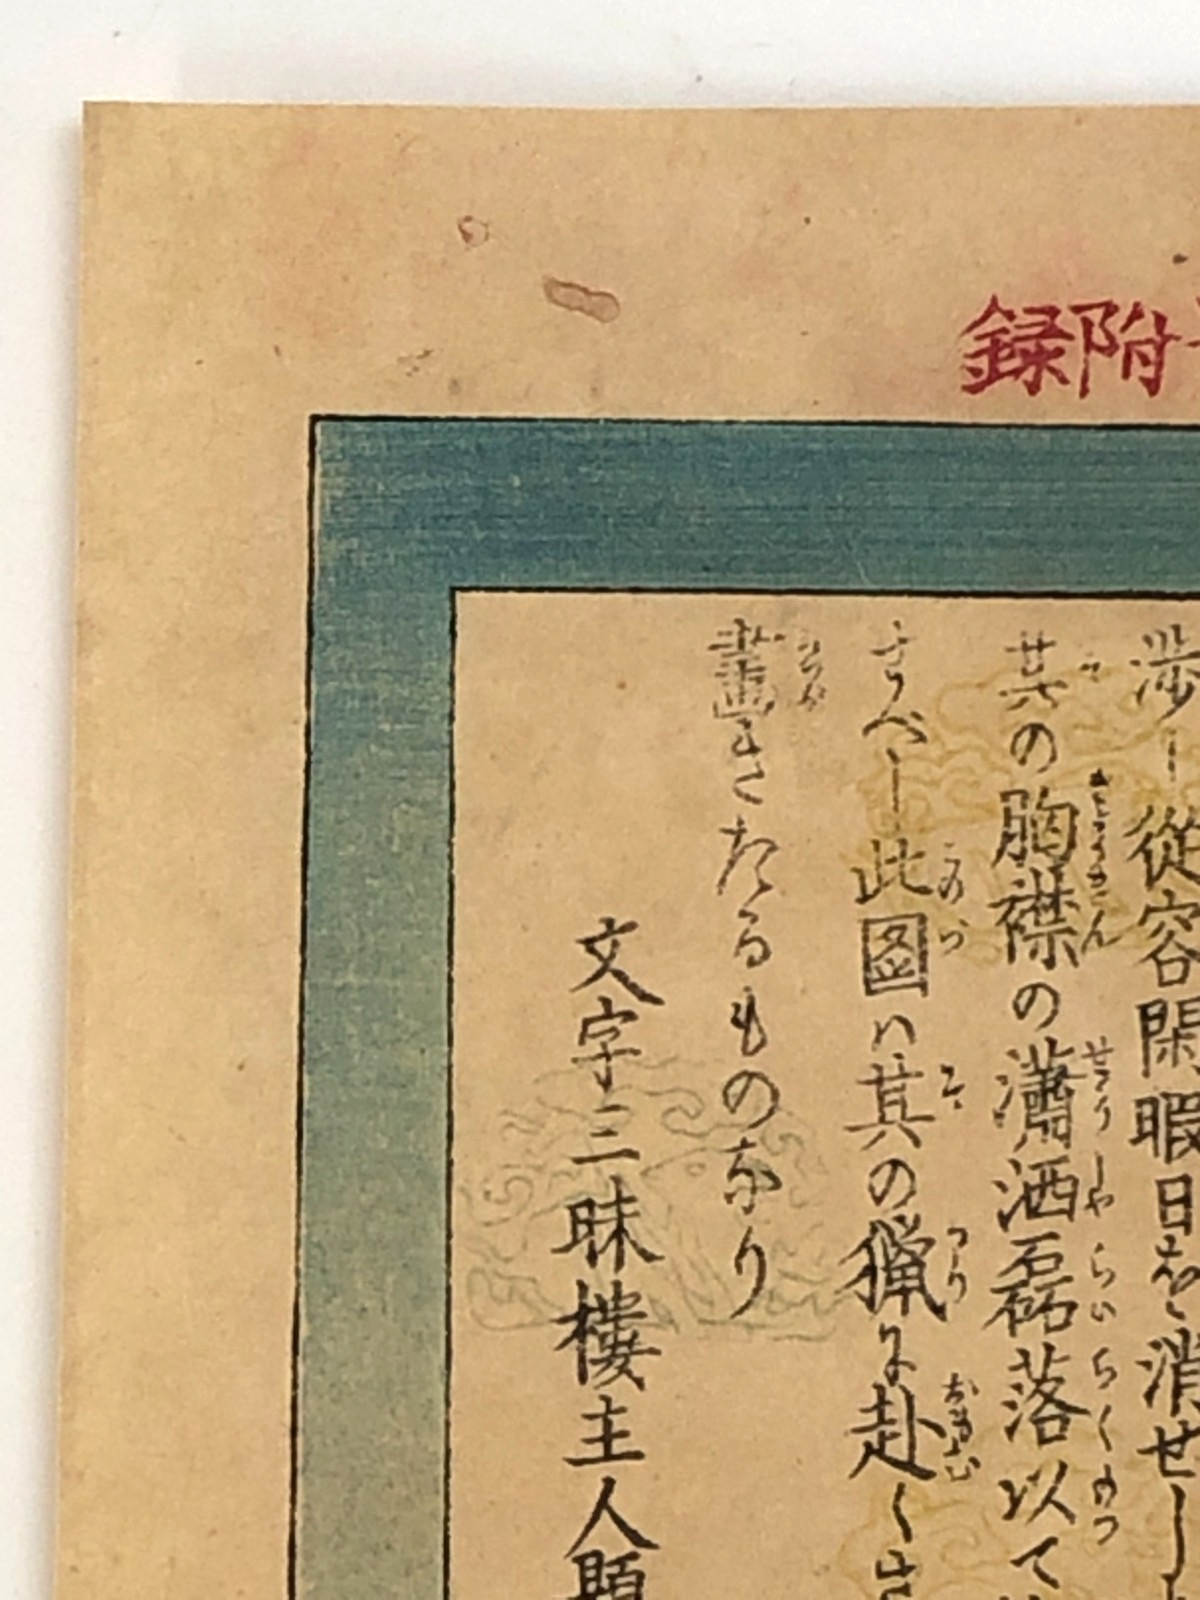 附録
渉し從容閑暇日を消せし
其の胸襟の瀟洒磊落以て
きべし此图ハ其の猟に赴くさ
畫きたるものなり
文字三昧樓主人題